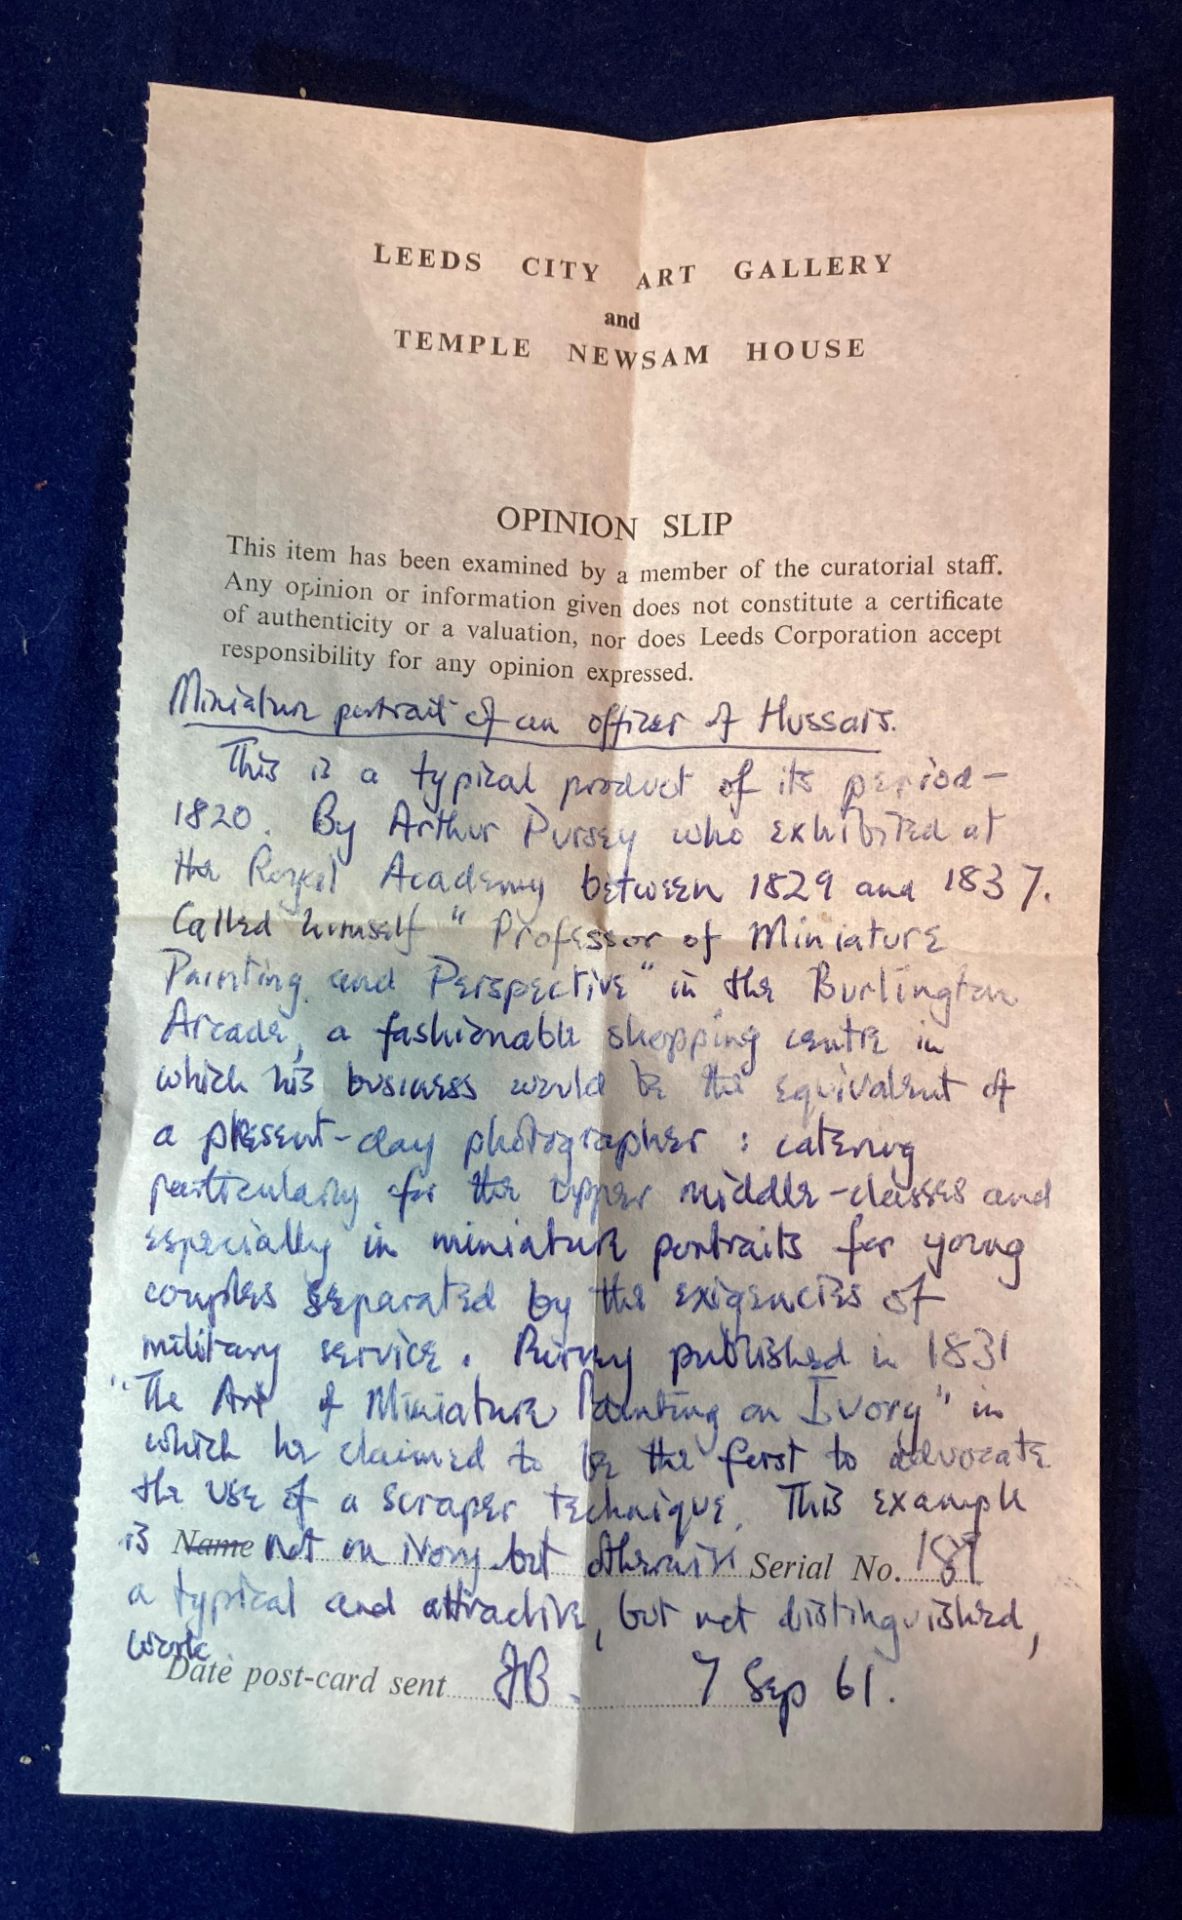 LEEDS CITY ART GALLERY
and
TEMPLE NEWSAM HOUSE
OPINION SLIP
This item has been examined by a member of the curatorial staff.
Any opinion or information given does not constitute a certificate
of authenticity or a valuation, nor does Leeds Corporation accept
responsibility for any opinion expressed.
Miniature portrait of an officer of Hussars.
This is a typical product of its period –
1820. By Arthur Pursey who exhibited at
the Royal Academy between 1829 and 1837.
Called himself "Professor of Miniature
Painting and Perspective" in the Burlington
Arcade, a fashionable shopping centre in
which his business would be the equivalent of
a present-day photographer : catering
particularly for the upper middle-classes and
especially in miniature portraits for young
couples separated by the exigencies of
military service. Pursey published in 1831
"The Art of Miniature Painting on Ivory" in
which he claimed to be the first to advocate
the use of a scraper technique. This example
is Name not on ivory but otherwise Serial No. 189
a typical and attractive, but not distinguished,
work.
Date post-card sent JB. 7 Sep 61.